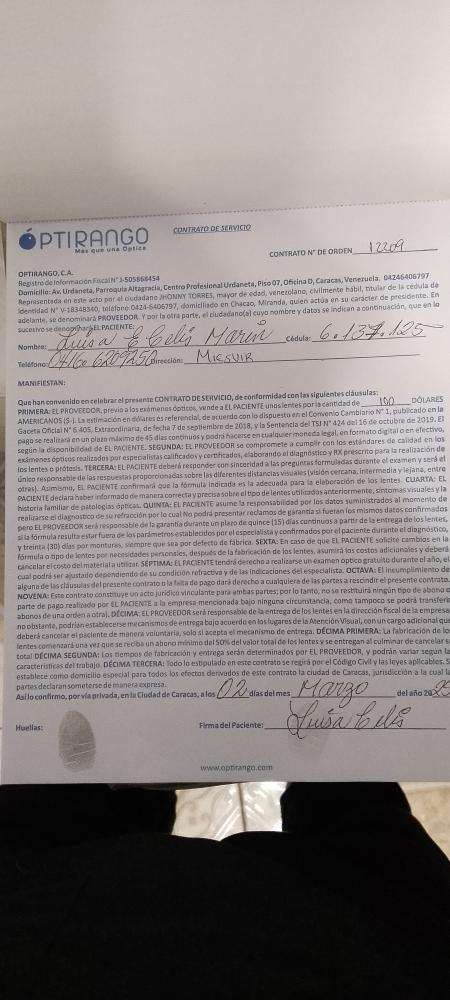 ÓPTIRANGO
Más que una Óptica
CONTRATO DE SERVICIO
CONTRATO N° DE ORDEN 12209
OPTIRANGO, C.A.
Registro de Información Fiscal N° J-505868454
Domicilio: Av. Urdaneta, Parroquia Altagracia, Centro Profesional Urdaneta, Piso 07, Oficina D, Caracas, Venezuela. 04246406797
Representada en este acto por el ciudadano JHONNY TORRES, mayor de edad, venezolano, civilmente hábil, titular de la cédula de
Identidad N° V-18348340, teléfono 0424-6406797, domiciliado en Chacao, Miranda, quien actúa en su carácter de presidente. En
adelante, se denominará PROVEEDOR. Y por la otra parte, el ciudadano(a) cuyo nombre y datos se indican a continuación, que en lo
sucesivo se denominará EL PACIENTE:
Nombre: Luisa E Celis Marin Cédula: 6.137.125
Teléfono: 0416 6209250 Dirección: MIESVIR
MANIFIESTAN:
Que han convenido en celebrar el presente CONTRATO DE SERVICIO, de conformidad con las siguientes cláusulas:
PRIMERA: EL PROVEEDOR, previo a los exámenes ópticos, vende a EL PACIENTE unos lentes por la cantidad de 100 DÓLARES
AMERICANOS ($-). La estimación en dólares es referencial, de acuerdo con lo dispuesto en el Convenio Cambiario N° 1, publicado en la
Gaceta Oficial N° 6.405, Extraordinaria, de fecha 7 de septiembre de 2018, y la Sentencia del TSJ N° 424 del 16 de octubre de 2019. El
pago se realizará en un plazo máximo de 45 días continuos y podrá hacerse en cualquier moneda legal, en formato digital o en efectivo,
según la disponibilidad de EL PACIENTE. SEGUNDA: EL PROVEEDOR se compromete a cumplir con los estándares de calidad en los
exámenes ópticos realizados por especialistas calificados y certificados, elaborando el diagnóstico y RX prescrito para la realización de
los lentes o prótesis. TERCERA: EL PACIENTE deberá responder con sinceridad a las preguntas formuladas durante el examen y será el
único responsable de las respuestas proporcionadas sobre las diferentes distancias visuales (visión cercana, intermedia y lejana, entre
otras). Asimismo, EL PACIENTE confirmará que la fórmula indicada es la adecuada para la elaboración de los lentes. CUARTA: EL
PACIENTE declara haber informado de manera correcta y precisa sobre el tipo de lentes utilizados anteriormente, síntomas visuales y la
historia familiar de patologías ópticas. QUINTA: EL PACIENTE asume la responsabilidad por los datos suministrados al momento de
realizarse el diagnostico de su refracción por lo cual No podrá presentar reclamos de garantía si fueran los mismos datos confirmados
pero EL PROVEEDOR será responsable de la garantía durante un plazo de quince (15) días continuos a partir de la entrega de los lentes,
si la fórmula resulta estar fuera de los parámetros establecidos por el especialista y confirmados por el paciente durante el diagnóstico,
y treinta (30) días por monturas, siempre que sea por defecto de fábrica. SEXTA: En caso de que EL PACIENTE solicite cambios en la
fórmula o tipo de lentes por necesidades personales, después de la fabricación de los lentes, asumirá los costos adicionales y deberá
cancelar el costo del material a utilizar. SÉPTIMA: EL PACIENTE tendrá derecho a realizarse un examen óptico gratuito durante el año, el
cual podrá ser ajustado dependiendo de su condición refractiva y de las indicaciones del especialista. OCTAVA: El incumplimiento de
alguna de las cláusulas del presente contrato o la falta de pago dará derecho a cualquiera de las partes a rescindir el presente contrato.
NOVENA: Este contrato constituye un acto jurídico vinculante para ambas partes; por lo tanto, no se restituirá ningún tipo de abono o
parte de pago realizado por EL PACIENTE a la empresa mencionada bajo ninguna circunstancia, como tampoco se podrá transferir
abonos de una orden a otra). DÉCIMA: EL PROVEEDOR será responsable de la entrega de los lentes en la dirección fiscal de la empresa
no obstante, podrían establecerse mecanismos de entrega bajo acuerdo en los lugares de la Atención Visual, con un cargo adicional que
deberá cancelar el paciente de manera voluntaria, solo si acepta el mecanismo de entrega. DÉCIMA PRIMERA: La fabricación de los
lentes comenzará una vez que se reciba un abono mínimo del 50% del valor total de los lentes y se entregan al culminar de cancelar su
total DÉCIMA SEGUNDA: Los tiempos de fabricación y entrega serán determinados por EL PROVEEDOR, y podrán variar según la
características del trabajo. DÉCIMA TERCERA: Todo lo estipulado en este contrato se regirá por el Código Civil y las leyes aplicables. S
establece como domicilio especial para todos los efectos derivados de este contrato la ciudad de Caracas, jurisdicción a la cual la
partes declaran someterse de manera expresa.
Así lo confirmo, por vía privada, en la Ciudad de Caracas, a los 02 días del mes Marzo del año 20
Huellas:
Firma del Paciente: Luisa Celis
www.optirango.com